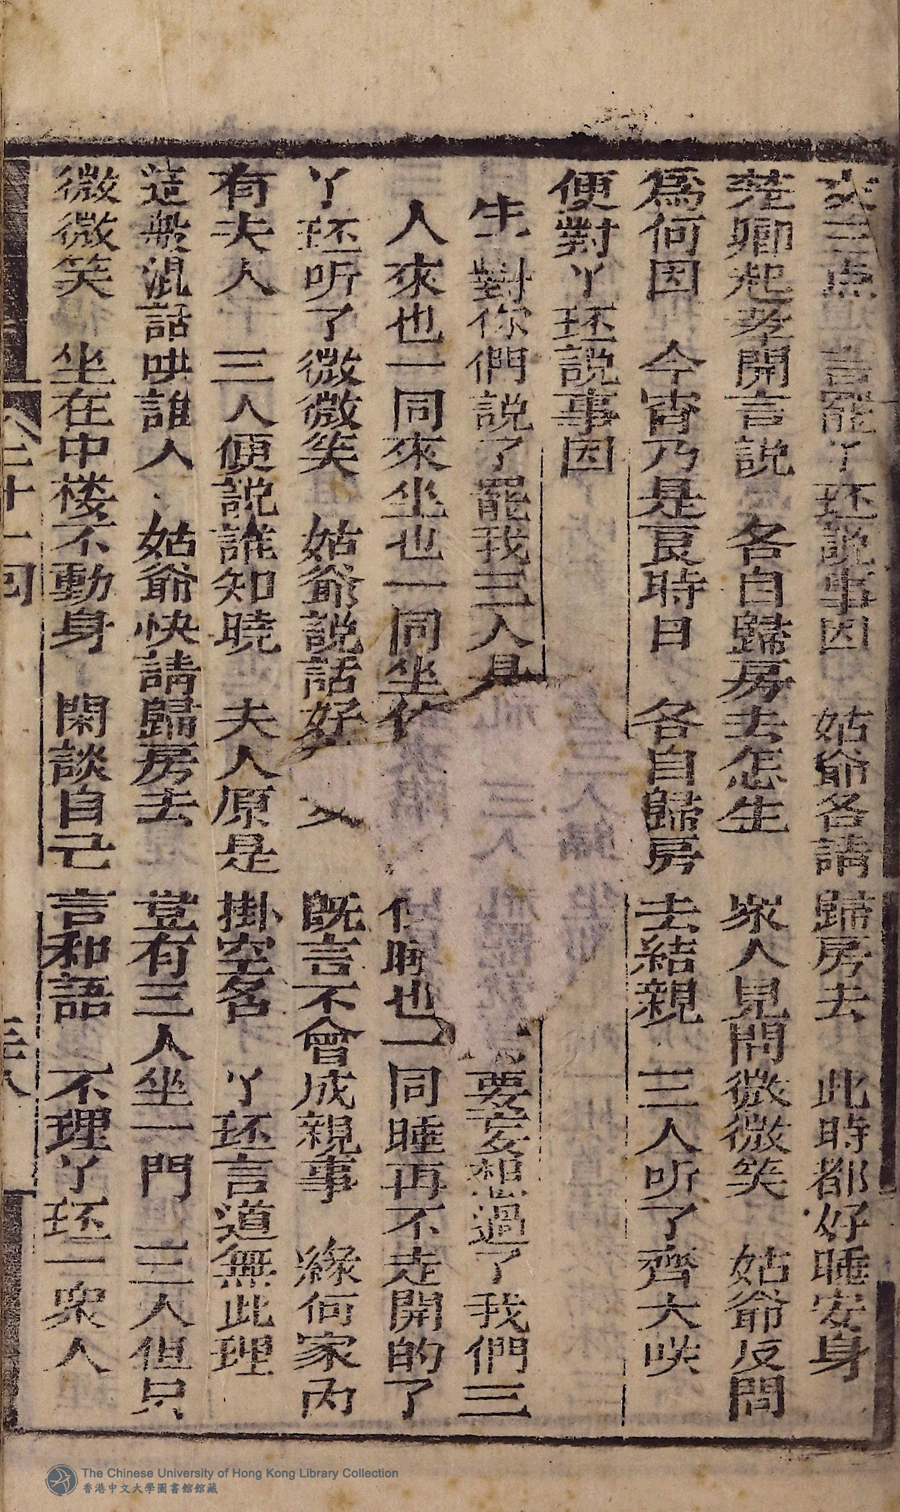 交三点　言罷丫环説事因　姑爺各請歸房去　此時都好睡安身
茫卿起孝開言説　各自歸房去怎生　衆人見問微微笑　姑爺反問
爲何因　今宵乃是良時日　各自歸房去結親　三人听了齊大咲
便對丫环説事因
生　對你們説了罷我三人是要妄想過了我們三
人來也一同來坐也一同坐　睡也一同睡再不走開的了
丫环听了微微笑　姑爺説話好　既言不會成親事　緣何家内
有夫人　三人便説誰知曉　夫人原是掛空名　丫环言道無此理
這般混話哄誰人　姑爺快請歸房去　豈有三人坐一門　三人但只
微微笑　坐在中楼不動身　閑談自己言和語　不理丫环一衆人
十一回
The Chinese University of Hong Kong Library Collection
香港中文大學圖書館館藏